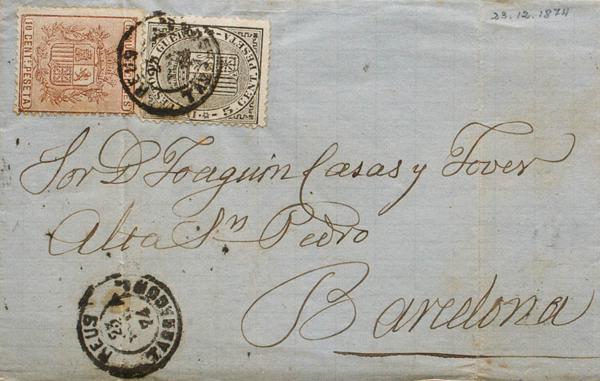 23.12.1874
10 CENT. PESETA
5 CENT. PESETA
REUS
Sor D Joaquin Casas y Tover
Alta Sn Pedro
Barcelona
REUS
23
74
TARRAGONA